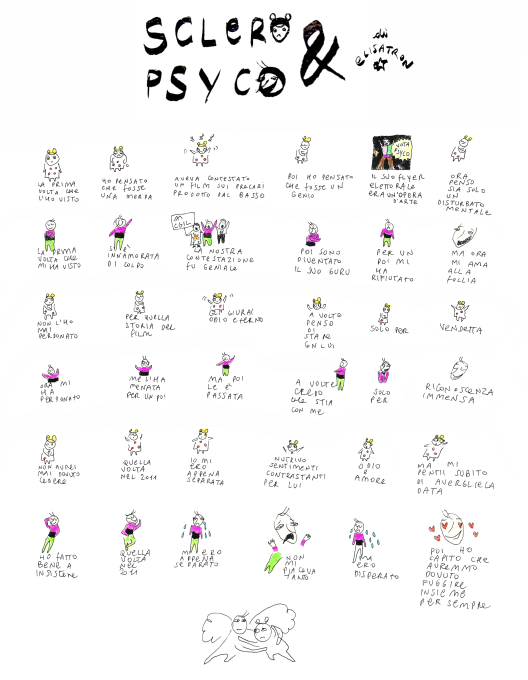 SCLERO &
PSYCO
di
ELISATRON
LA PRIMA
VOLTA CHE
L'HO VISTO
HO PENSATO
CHE FOSSE
UNA MERDA
AVEVA CONTESTATO
UN FILM SUI PRECARI
PRODOTTO DAL BASSO
POI HO PENSATO
CHE FOSSE UN
GENIO
VOTA
PSYCO
IL SUO FLYER
ELETTORALE
ERA UN'OPERA
D'ARTE
ORA
PENSO
SIA SOLO
UN
DISTURBATO
MENTALE
LA PRIMA
VOLTA CHE
MI HA VISTO
S'È
INNAMORATA
DI COLPO
CGIL
LA NOSTRA
CONTESTAZIONE
FU GENIALE
POI SONO
DIVENTATO
IL SUO GURU
PER UN
PO' MI
HA
RIFIUTATO
MA ORA
MI AMA
ALLA
FOLLIA
NON L'HO
MAI
PERDONATO
PER QUELLA
STORIA DEL
FILM
GLI GIURAI
ODIO ETERNO
A VOLTE
PENSO
DI
STARE
CON LUI
SOLO PER
VENDETTA
ORA MI
HA
PERDONATO
ME L'HA
MENATA
PER UN PO'
MA POI
LE È
PASSATA
A VOLTE
CREDO
CHE STIA
CON ME
SOLO
PER
RICONOSCENZA
IMMENSA
NON AVREI
MAI DOVUTO
CEDERE
QUELLA
VOLTA
NEL 2011
IO MI
ERO
APPENA
SEPARATA
NUTRIVO
SENTIMENTI
CONTRASTANTI
PER LUI
ODIO
E
AMORE
MA MI
PENTII SUBITO
DI AVERGLIELA
DATA
HO FATTO
BENE A
INSISTERE
QUELLA
VOLTA
NEL
2011
MI ERO
APPENA
SEPARATO
NON
MI
PIACEVA
TANTO
MA
ERO
DISPERATO
POI HO
CAPITO CHE
AVREMMO
DOVUTO
FUGGIRE
INSIEME
PER SEMPRE